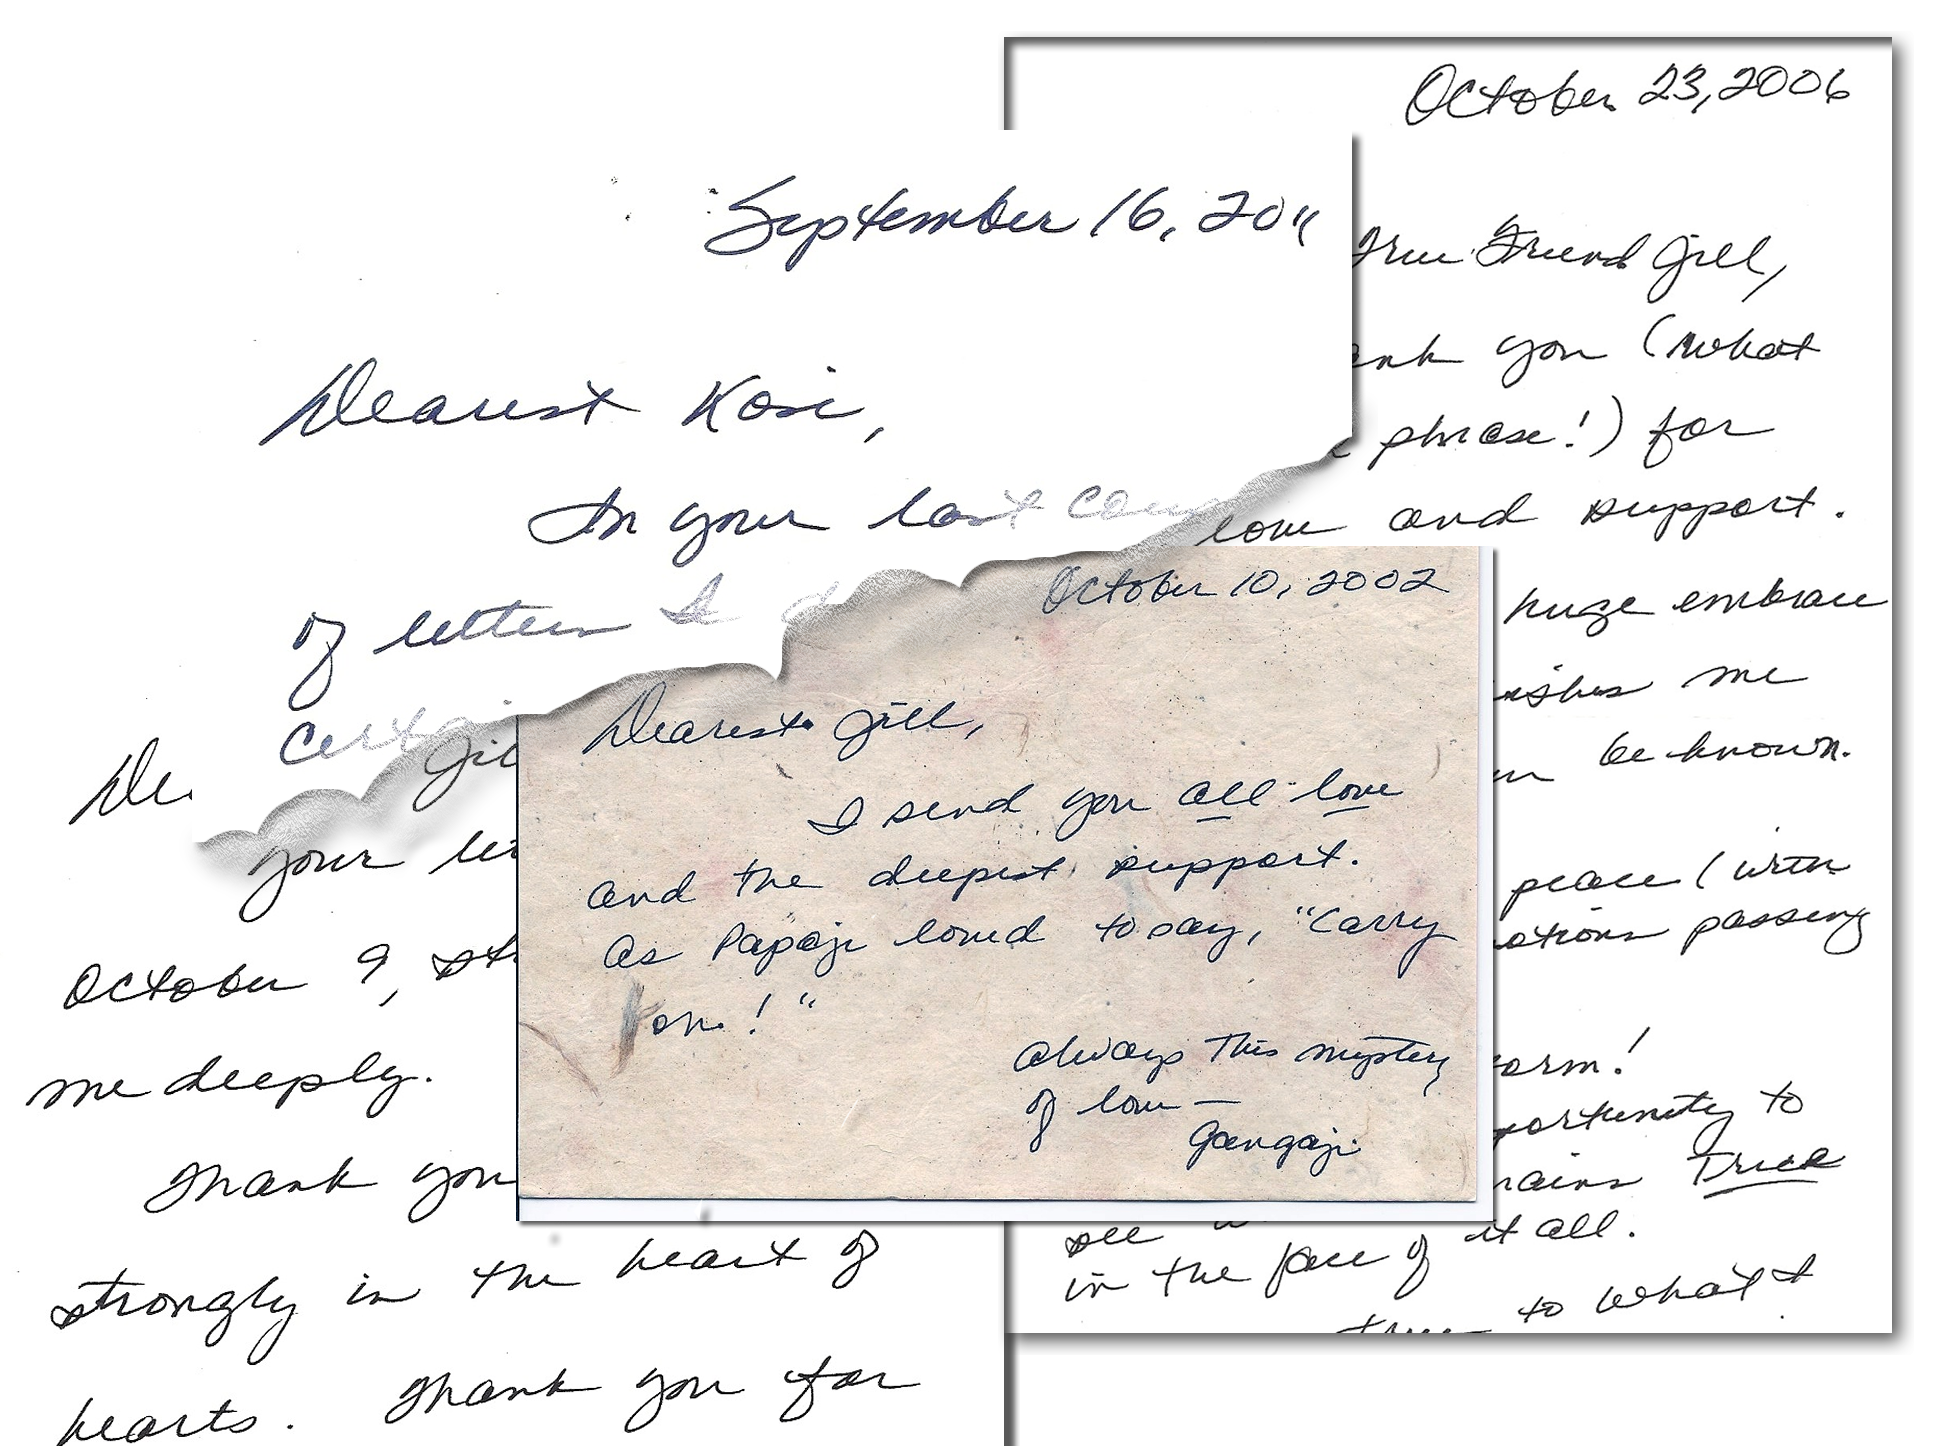 September 16, 2011
Dearest Kosi,
In your last
of letters I
October 23, 2006
True Friend Jill,
you (what
phrase!) for
love and support.
huge embrace
me
be known.
peace (with
passing
to
True
see
it all.
in the face of
to what I
October 10, 2002
Dearest Jill,
I send you all love
and the deepest support.
As Papaji loved to say, "Carry
on!"
Always this mystery
of love —
Gangaji
your
October 9,
me deeply.
Thank you
strongly in the heart of
hearts. Thank you for